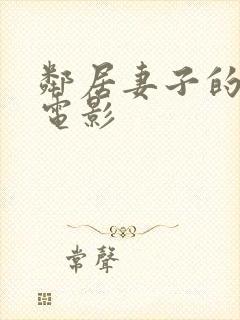 鄰居妻子的
電影
常聲